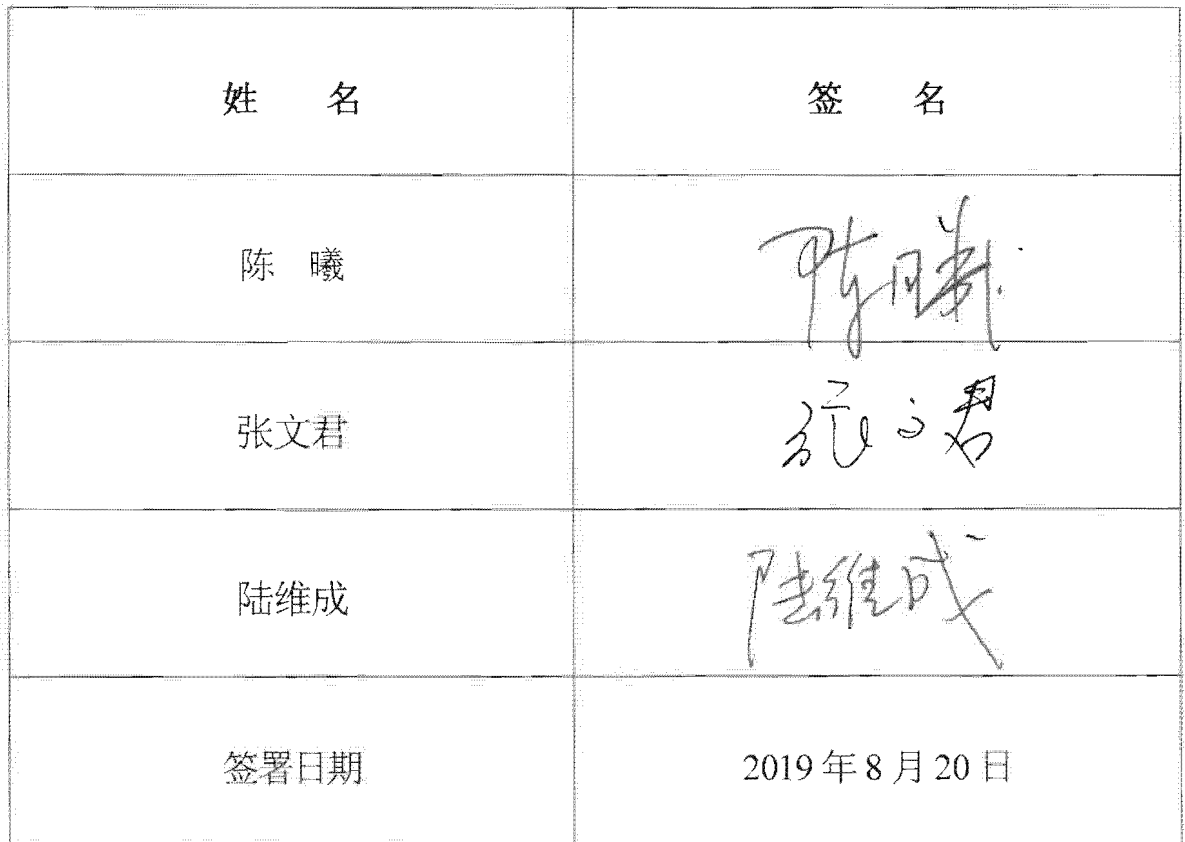 姓 名 签 名
陈 曦 陈曦
张文君 张文君
陆维成 陆维成
签署日期 2019年8月20日